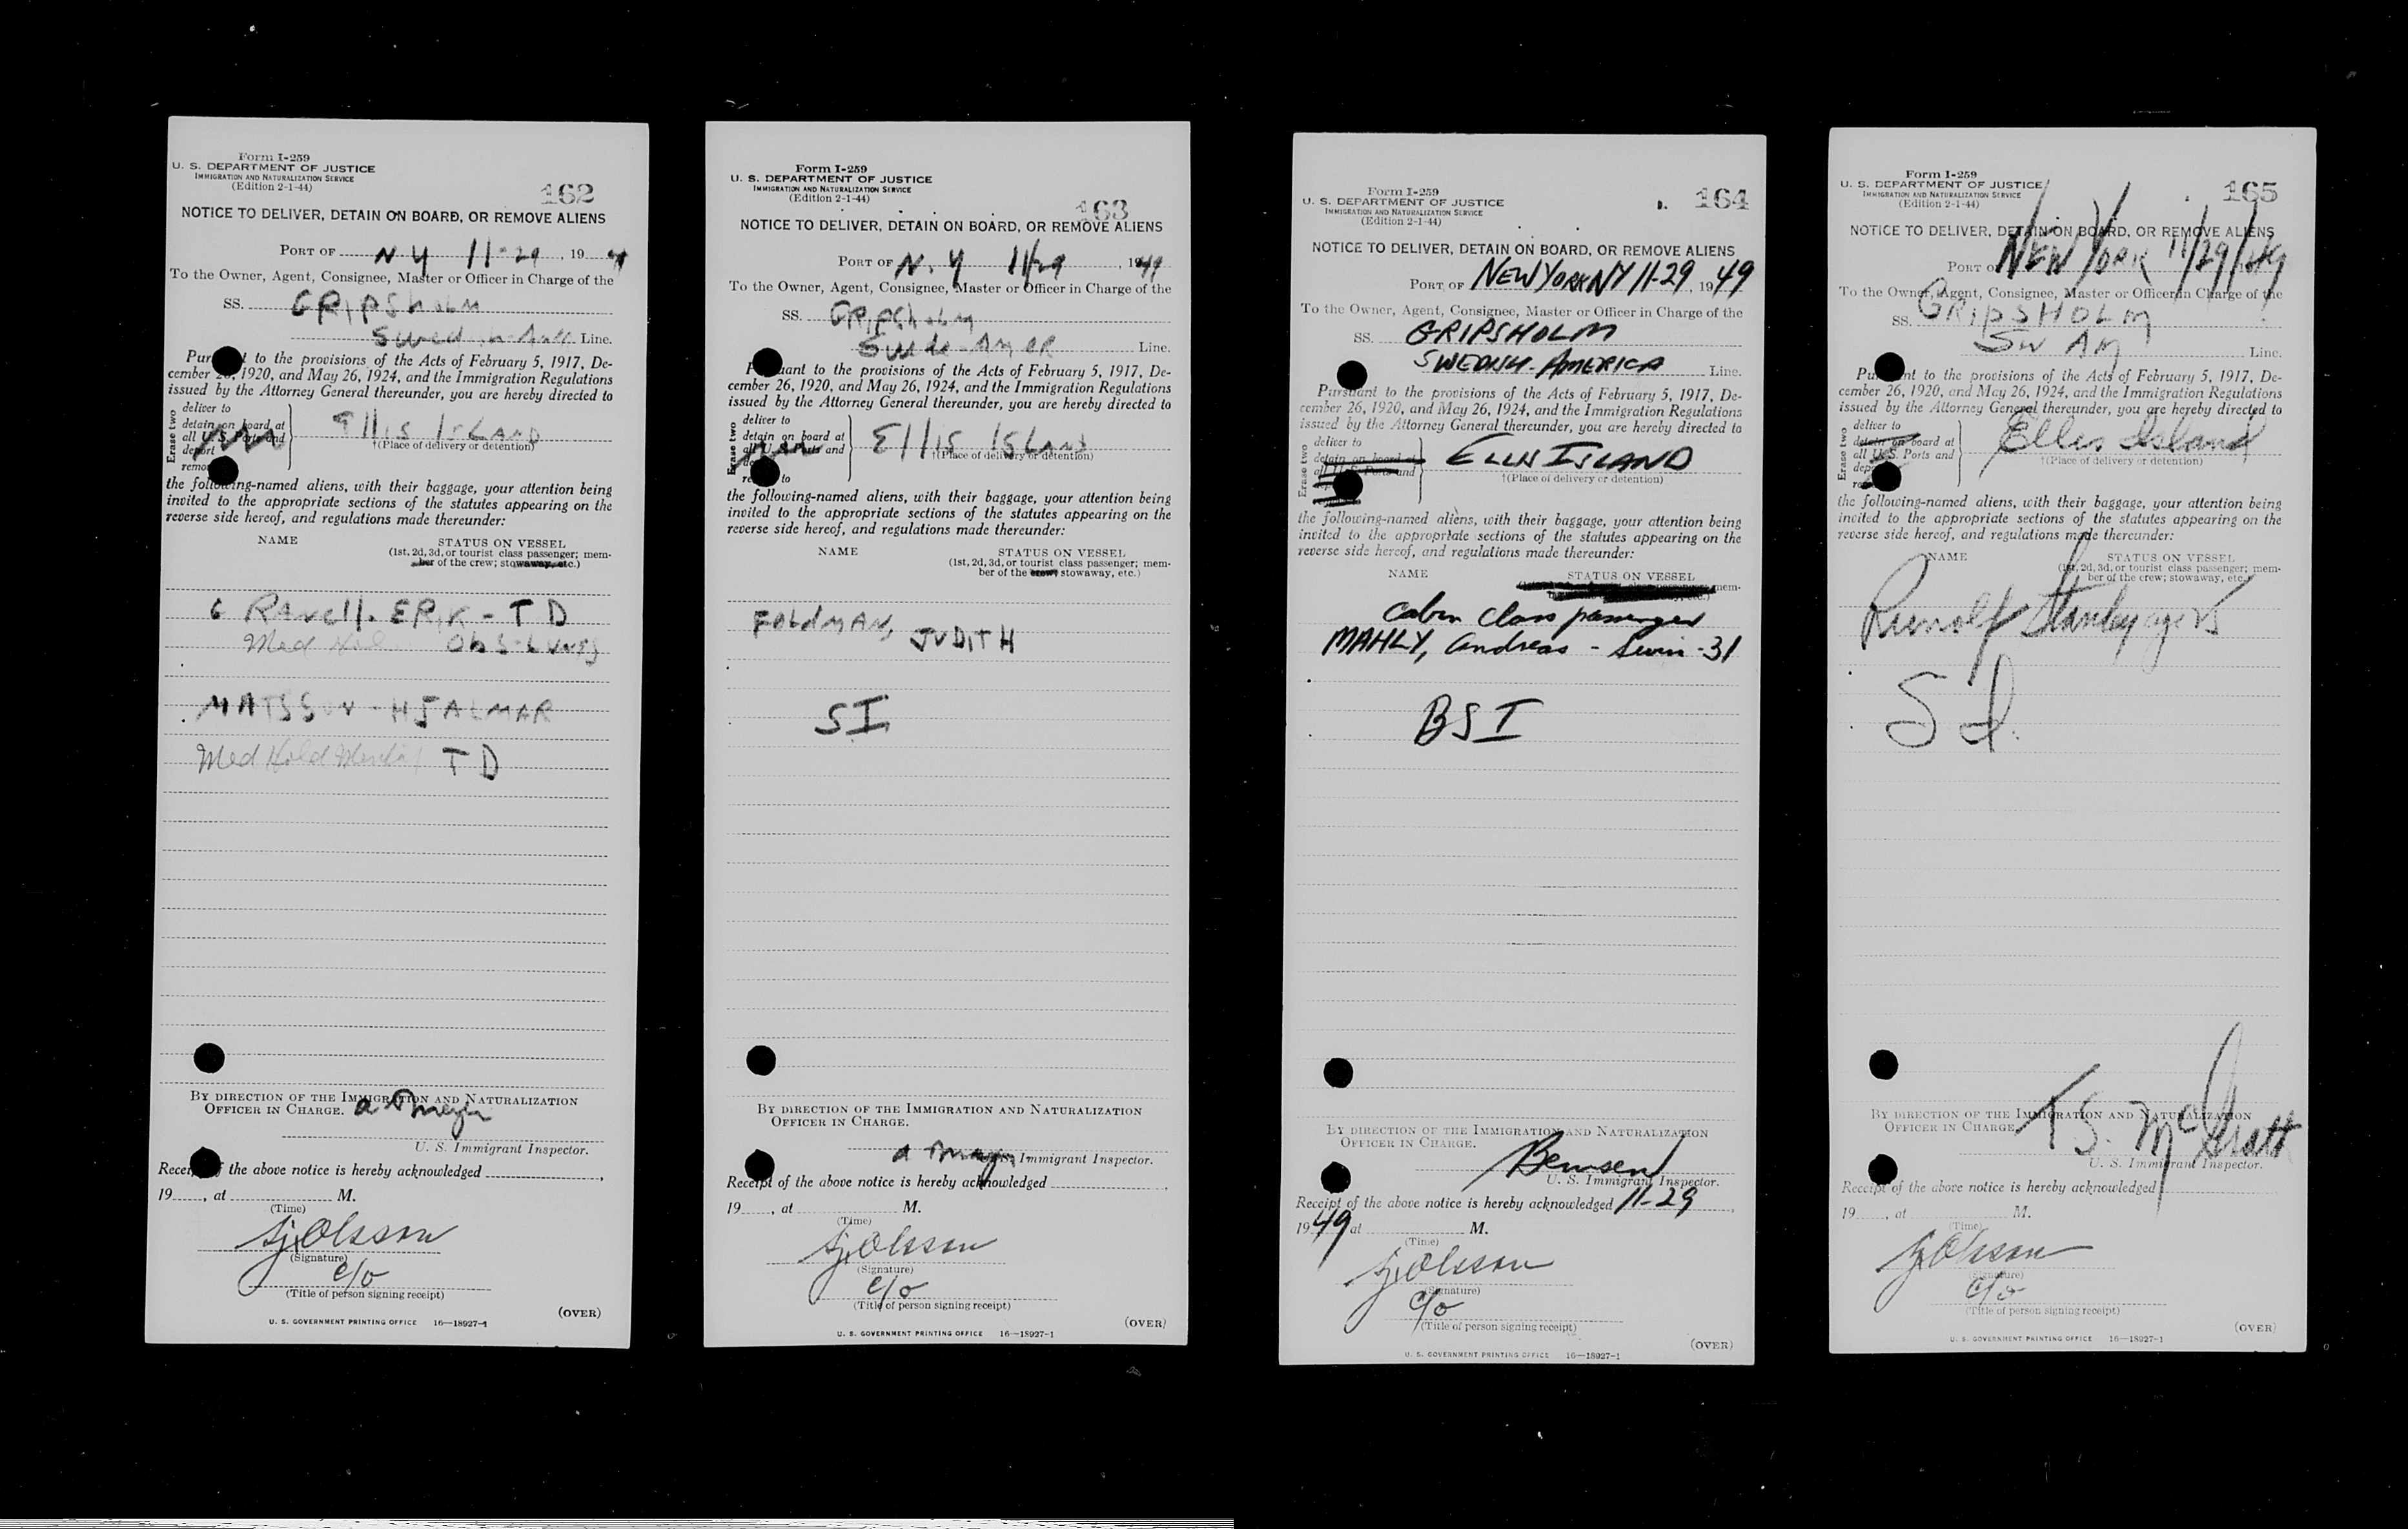 Form I-259
U. S. DEPARTMENT OF JUSTICE
IMMIGRATION AND NATURALIZATION SERVICE
(Edition 2-1-44)
162
NOTICE TO DELIVER, DETAIN ON BOARD, OR REMOVE ALIENS
PORT OF N Y 11-29, 19
To the Owner, Agent, Consignee, Master or Officer in Charge of the
SS. GRIPSHOLM
Line.
Pursuant to the provisions of the Acts of February 5, 1917, De-
cember 26, 1920, and May 26, 1924, and the Immigration Regulations
issued by the Attorney General thereunder, you are hereby directed to
Erase two
deliver to
detain on board at
all U. S. Ports and
deport
remove
Ellis ISLAND
†(Place of delivery or detention)
the following-named aliens, with their baggage, your attention being
invited to the appropriate sections of the statutes appearing on the
reverse side hereof, and regulations made thereunder:
NAME
STATUS ON VESSEL
(1st, 2d, 3d, or tourist class passenger; mem-
ber of the crew; stowaway, etc.)
ERIK - T D
Med
MATSSON - HJALMAR
Med Hold T D
BY DIRECTION OF THE IMMIGRATION AND NATURALIZATION
OFFICER IN CHARGE.
U. S. Immigrant Inspector.
Receipt of the above notice is hereby acknowledged
19 , at M.
(Time)
Olsson
(Signature)
c/o
(Title of person signing receipt)
(OVER)
U. S. GOVERNMENT PRINTING OFFICE 16—18927-1
Form I-259
U. S. DEPARTMENT OF JUSTICE
IMMIGRATION AND NATURALIZATION SERVICE
(Edition 2-1-44)
163
NOTICE TO DELIVER, DETAIN ON BOARD, OR REMOVE ALIENS
PORT OF N. Y 11/29, 1949
To the Owner, Agent, Consignee, Master or Officer in Charge of the
SS. GRIPSHOLM
Swede-Amer Line.
Pursuant to the provisions of the Acts of February 5, 1917, De-
cember 26, 1920, and May 26, 1924, and the Immigration Regulations
issued by the Attorney General thereunder, you are hereby directed to
Erase two
deliver to
detain on board at
all U. S. Ports and
remove to
Ellis ISLAND
†(Place of delivery or detention)
the following-named aliens, with their baggage, your attention being
invited to the appropriate sections of the statutes appearing on the
reverse side hereof, and regulations made thereunder:
NAME
STATUS ON VESSEL
(1st, 2d, 3d, or tourist class passenger; mem-
ber of the crew; stowaway, etc.)
JUDITH
SI
BY DIRECTION OF THE IMMIGRATION AND NATURALIZATION
OFFICER IN CHARGE.
U. S. Immigrant Inspector.
Receipt of the above notice is hereby acknowledged
19 , at M.
(Time)
Olsson
(Signature)
c/o
(Title of person signing receipt)
(OVER)
U. S. GOVERNMENT PRINTING OFFICE 16—18927-1
Form I-259
U. S. DEPARTMENT OF JUSTICE
IMMIGRATION AND NATURALIZATION SERVICE
(Edition 2-1-44)
164
NOTICE TO DELIVER, DETAIN ON BOARD, OR REMOVE ALIENS
PORT OF NEW YORK NY 11-29, 1949
To the Owner, Agent, Consignee, Master or Officer in Charge of the
SS. GRIPSHOLM
SWEDISH-AMERICA Line.
Pursuant to the provisions of the Acts of February 5, 1917, De-
cember 26, 1920, and May 26, 1924, and the Immigration Regulations
issued by the Attorney General thereunder, you are hereby directed to
Erase two
deliver to
detain on board at
all U. S. Ports and
ELLIS ISLAND
†(Place of delivery or detention)
the following-named aliens, with their baggage, your attention being
invited to the appropriate sections of the statutes appearing on the
reverse side hereof, and regulations made thereunder:
NAME
STATUS ON VESSEL
mem-
Cabin Class passenger
MAHLY, Andreas - Swiss - 31
BSI
BY DIRECTION OF THE IMMIGRATION AND NATURALIZATION
OFFICER IN CHARGE.
U. S. Immigrant Inspector.
Receipt of the above notice is hereby acknowledged 11-29
1949 at M.
(Time)
Olsson
(Signature)
c/o
(Title of person signing receipt)
(OVER)
U. S. GOVERNMENT PRINTING OFFICE 16—18927-1
Form I-259
U. S. DEPARTMENT OF JUSTICE
IMMIGRATION AND NATURALIZATION SERVICE
(Edition 2-1-44)
165
NOTICE TO DELIVER, DETAIN ON BOARD, OR REMOVE ALIENS
PORT OF NEW YORK 11/29/1949
To the Owner, Agent, Consignee, Master or Officer in Charge of the
SS. GRIPSHOLM
SW AM Line.
Pursuant to the provisions of the Acts of February 5, 1917, De-
cember 26, 1920, and May 26, 1924, and the Immigration Regulations
issued by the Attorney General thereunder, you are hereby directed to
Erase two
deliver to
detain on board at
all U. S. Ports and
deport
Ellis Island
†(Place of delivery or detention)
the following-named aliens, with their baggage, your attention being
invited to the appropriate sections of the statutes appearing on the
reverse side hereof, and regulations made thereunder:
NAME
STATUS ON VESSEL
(1st, 2d, 3d, or tourist class passenger; mem-
ber of the crew; stowaway, etc.)
S I.
BY DIRECTION OF THE IMMIGRATION AND NATURALIZATION
OFFICER IN CHARGE.
T S.
U. S. Immigrant Inspector.
Receipt of the above notice is hereby acknowledged
19 , at M.
(Time)
Olsson
(Signature)
c/o
(Title of person signing receipt)
(OVER)
U. S. GOVERNMENT PRINTING OFFICE 16—18927-1